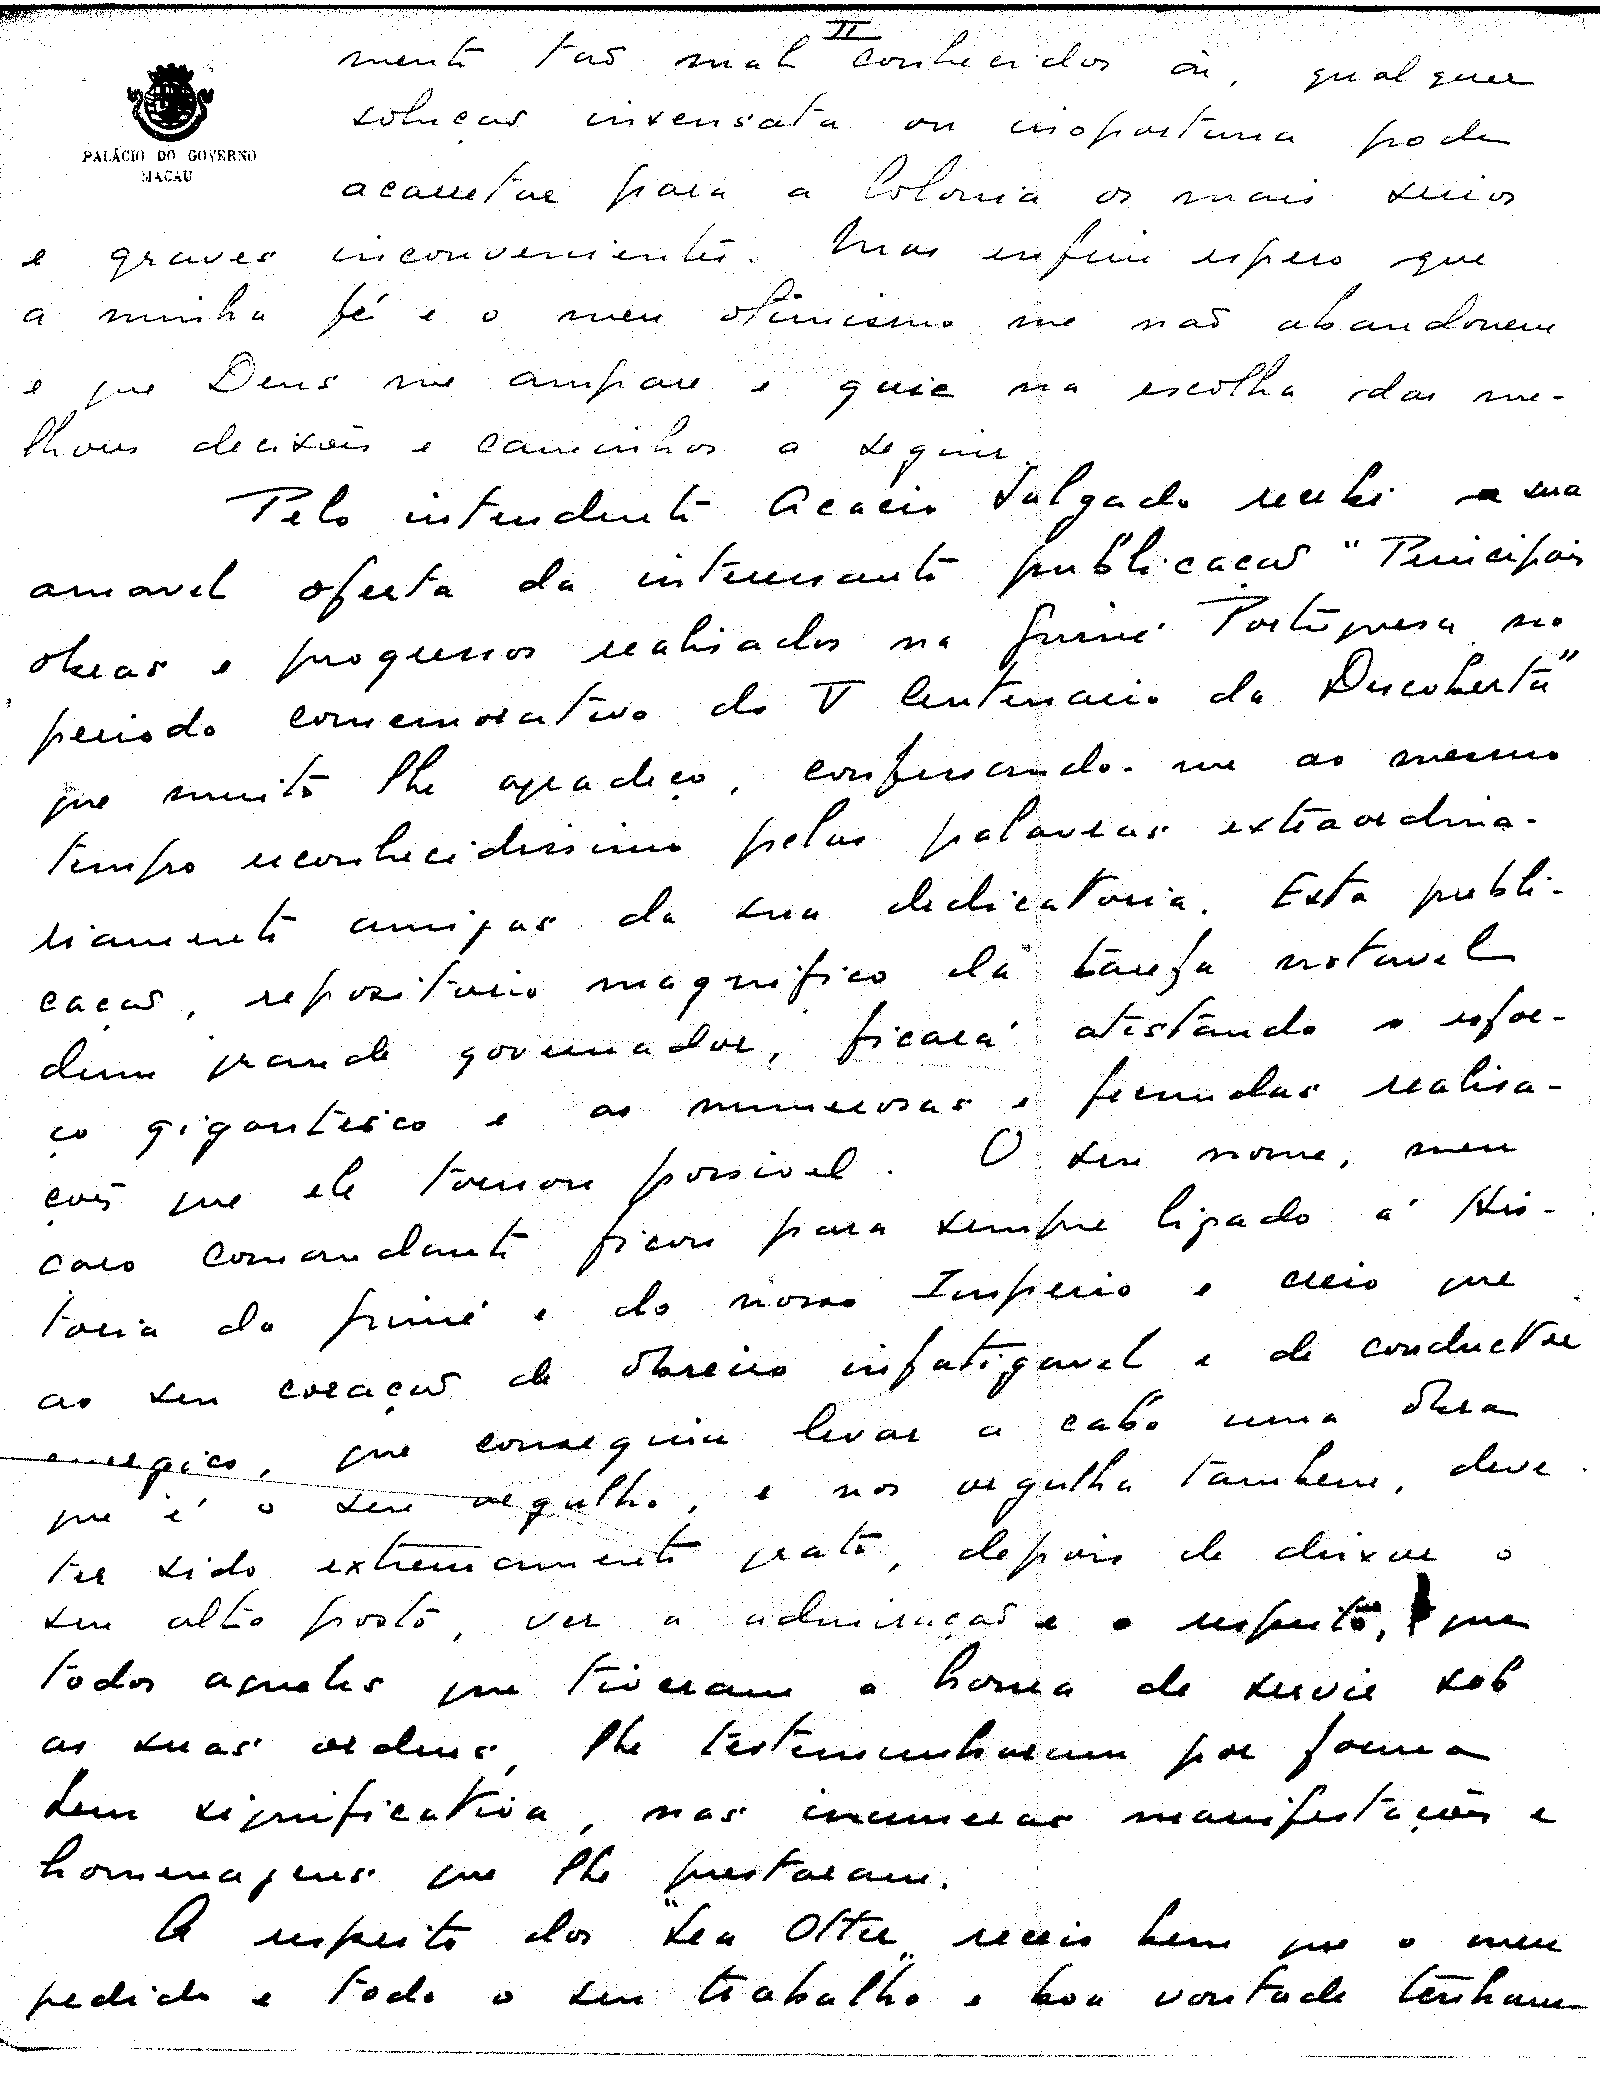 II
PALÁCIO DO GOVERNO
MACAU
mente tão mal conhecidos cá, qualquer
solução insensata ou inoportuna pode
acarretar para a Colonia os mais serios
e graves inconvenientes. Mas enfim espero que
a minha fé e o meu otimismo me não abandonem
e que Deus me ampare e guie na escolha das me-
lhores decisões e caminhos a seguir.
Pelo intendente Acacio Salgado recebi a sua
amavel oferta da interessante publicação "Principais
obras e progressos realisados na Guiné Portuguesa no
periodo comemorativo do V Centenario da Descoberta"
que muito lhe agradeço, confessando-me ao mesmo
tempo reconhecidissimo pelas palavras extraordina-
riamente amigas da sua dedicatoria. Esta publi-
cação, repositorio magnifico da tarefa notavel
dum grande governador, ficará atestando o esfor-
ço gigantesco e as numerosas e fecundas realisa-
ções que ele tornou possivel. O seu nome, meu
caro Comandante ficou para sempre ligado á His-
toria da Guiné e do nosso Imperio e creio que
ao seu coração de obreiro infatigavel e de conductor
energico, que conseguiu levar a cabo uma obra
que é o seu orgulho, e nos orgulha tambem, deve
ter sido extremamente grato, depois de deixar o
seu alto posto, ver a admiração e o respeito, que
todos aqueles que tiveram a honra de servir sob
as suas ordens, lhe testemunharam por forma
bem significativa, nas inumeras manifestações e
homenagens que lhe prestaram.
A respeito dos "Sea Otter" receio bem que o meu
pedido e todo o seu trabalho e boa vontade tenham